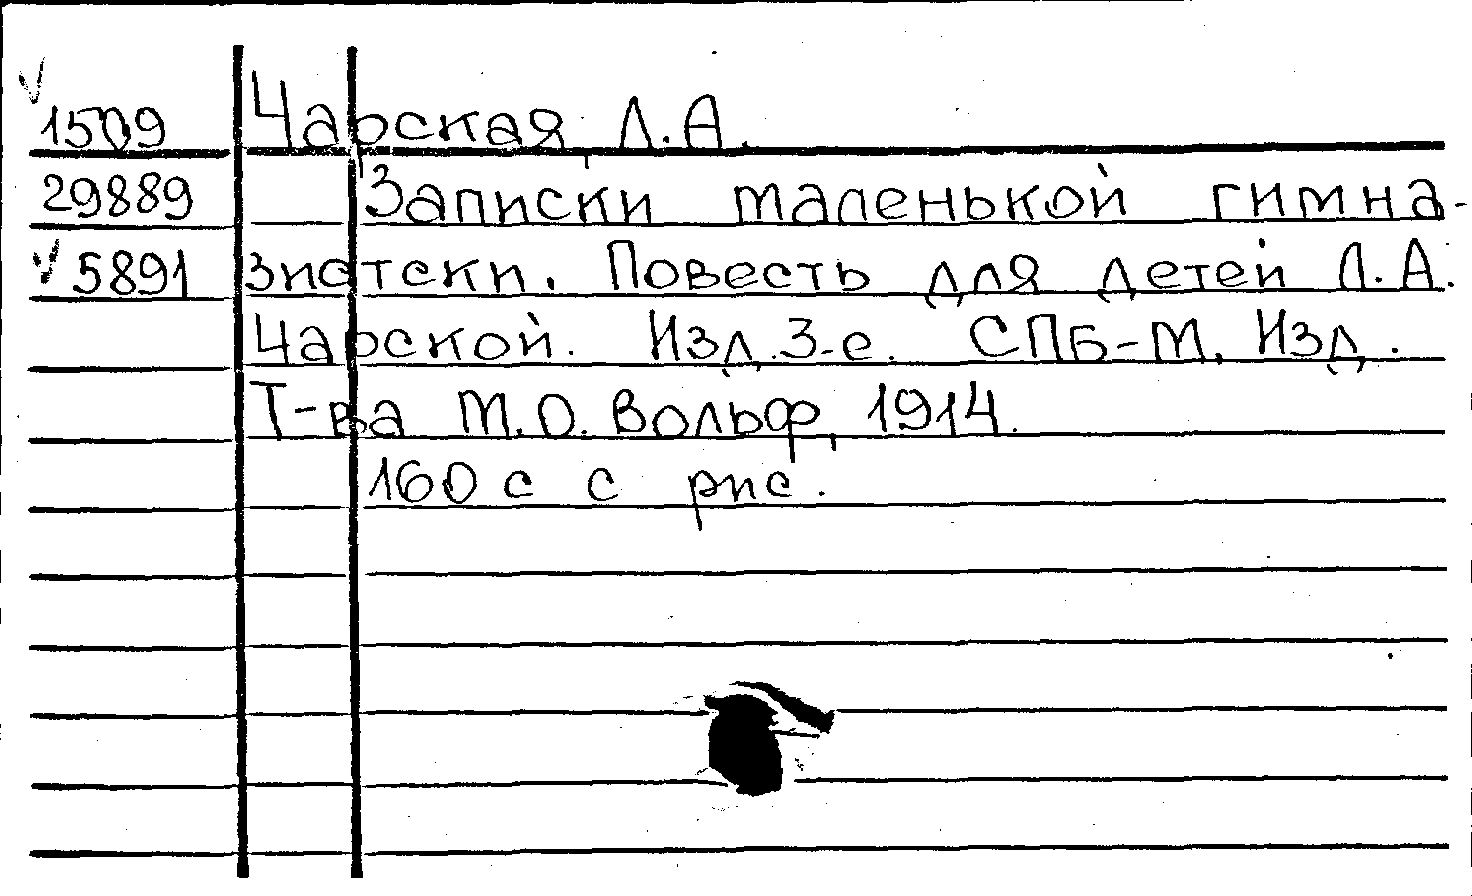 √
1509 Чарская Л.А.
29889 Записки маленькой гимна-
√ 5891 зистки. Повесть для детей Л.А.
Чарской. Изд. 3-е. СПБ-М, Изд.
Т-ва М.О. Вольф, 1914.
160 с с рис.